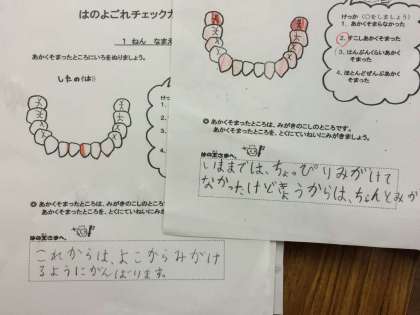 はのよごれチェックカ
1 ねん なまえ
あかくそまったところにいろをぬりましょう。
したの(は)
けっ
1.
2.
3.
4.
◎ あかくそまったところは、みがきのこしのところ
あかくそまったところを、とくにていねいにみが
はの王さまへ。
これからは、よこからみがけ
るようにがんばります。
けっか (○をしましょう)
1. あかくそまらなかった
2. すこしあかくそまった
3. はんぶんぐらいあかく
そまった
4. ほとんどぜんぶあかく
そまった
◎ あかくそまったところは、みがきのこしのところです。
あかくそまったところを、とくにていねいにみがきましょう。
はの王さまへ。
いままでは、ちょっぴりみがけて
なかったけどきょうからは、ちゃんとみが